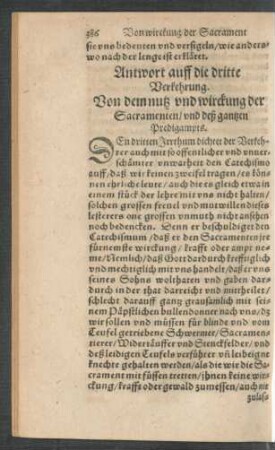 386 Von wirckung der Sacrament
sie vns bedeuten vnd versigeln/wie anders-
wo nach der lenge ist erkläret.
Antwort auff die dritte
Verkehrung.
Von dem nutz vnd wirckung der
Sacramenten/vnd deß gantzen
Predigampts.
DEn dritten Irrthum dichtet der Verkeh-
rer auch mit so offentlicher vnd vnuer-
schämter vnwarheit den Catechismo
auff/daß wir keinen zweifel tragen/es kön-
nen ehrliche leute/auch die es gleich etwa in
einem stück der lehre mit vns nicht halten/
solchen grossen freuel vnd mutwillen dieses
lesterers one grossen vnmuth nicht ansehen
noch bedencken. Denn er beschuldiget den
Catechismum/daß er den Sacramenten jr
fürnemste wirckung/krafft oder ampt neme/
Nemlich/daß Gott dardurch krefftiglich
vnd mechtiglich mit vns handele/daß er vns
seines Sohns wolthaten vnd gaben dar-
durch in der that darreicht vnd mittheilet/
schlecht darauff gantz grausamlich mit sei-
nem Päpstlichen bullendonner nach vns/dz
wir sollen vnd müssen für blinde vnd vom
Teufel getriebene Schwermer/Sacramens-
tierer/Widertäuffer vnd Stenckfelder/vnd
deß leidigen Teufels verführer vñ leibeigne
knechte gehalten werden/als die wir die Sa-
crament mit füssen tretten/jhnen keine wir-
ckung/krafft oder gewald zumessen/auch nie
zulass